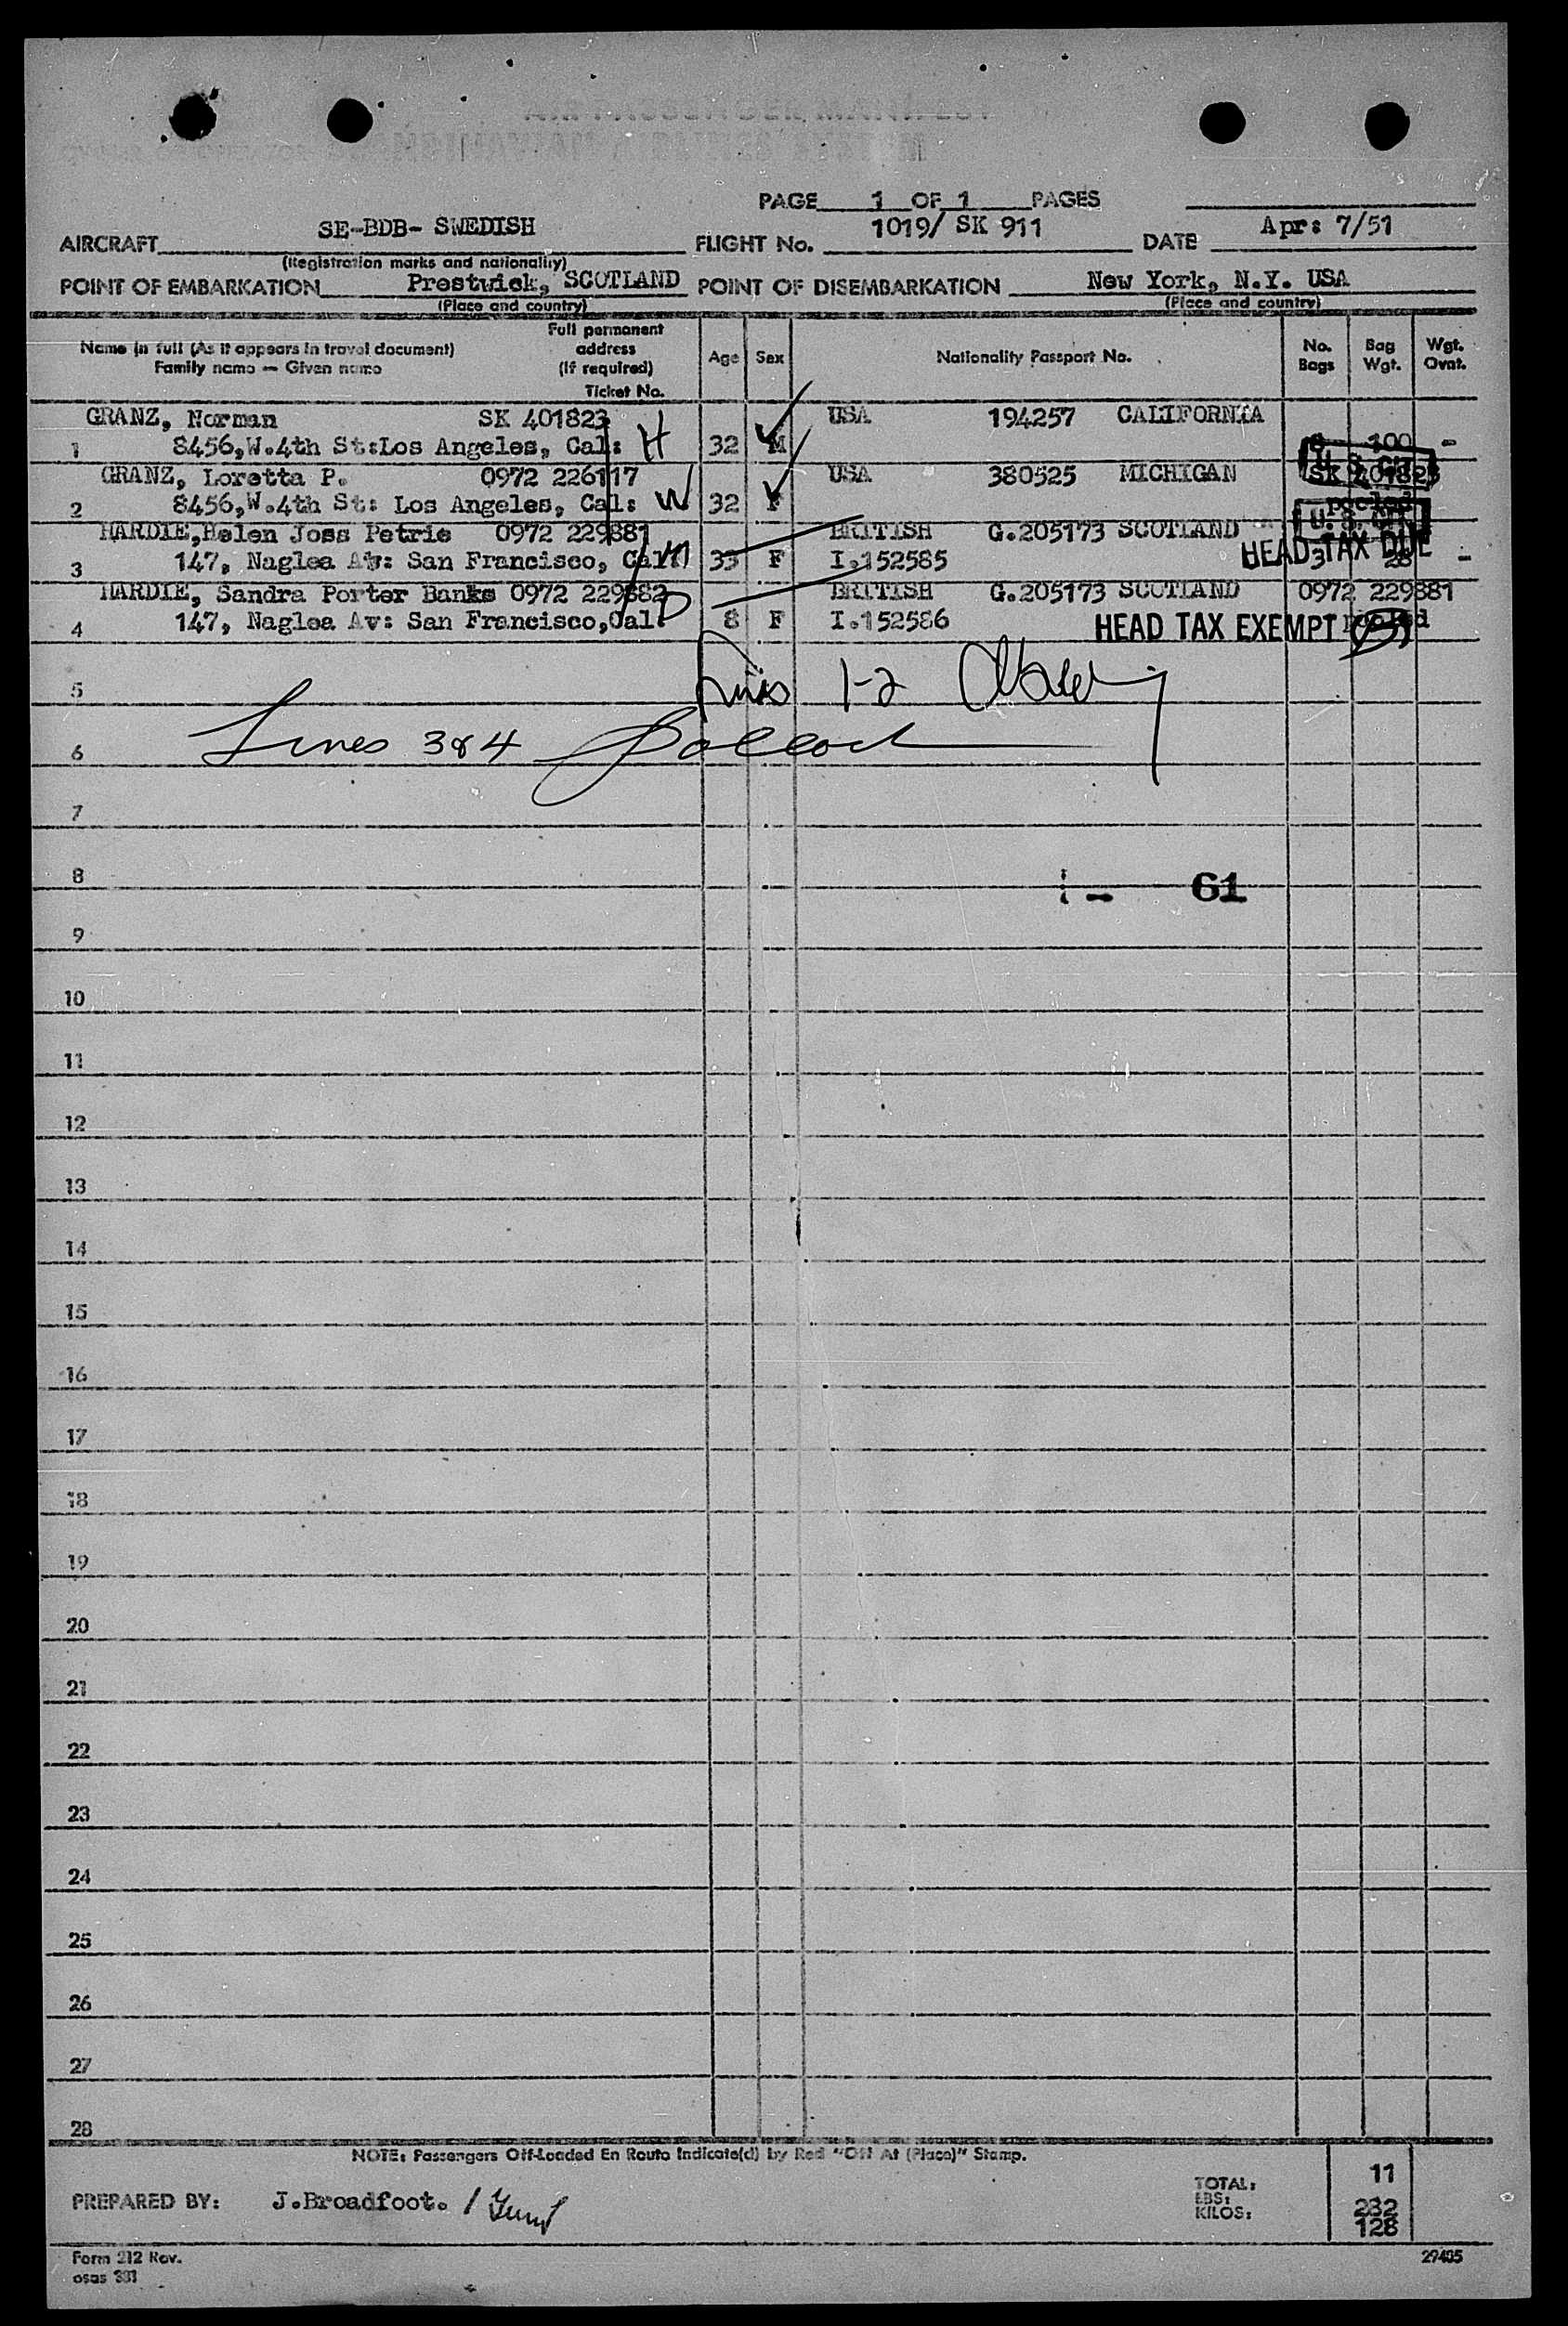 PAGE 1 OF 1 PAGES
AIRCRAFT SE-BDB- SWEDISH FLIGHT No. 1019/ SK 911 DATE Apr: 7/51
(Registration marks and nationality)
POINT OF EMBARKATION Prestwick, SCOTLAND POINT OF DISEMBARKATION New York, N.Y. USA
(Place and country) (Place and country)
Name in full (As it appears in travel document) Full permanent address (If required) Age Sex Nationality Passport No. No. Bags Bag Wgt. Wgt. Ovnt.
Family name — Given name Ticket No.
GRANZ, Norman SK 401823 USA 194257 CALIFORNIA
1 8456,W.4th St:Los Angeles, Cal: H 32 M 100 -
GRANZ, Loretta P. 0972 226117 USA 380525 MICHIGAN SK 401823
2 8456,W.4th St: Los Angeles, Cal: W 32 F pooled
U. S. CIT
U. S. CIT
HARDIE,Helen Joss Petrie 0972 229881 BRITISH G.205173 SCOTLAND
3 147, Naglea Av: San Francisco, Cal: M 35 F I.152585 HEAD TAX DUE 3 28 -
HARDIE, Sandra Porter Banks 0972 229882 BRITISH G.205173 SCOTLAND 0972 229881
4 147, Naglea Av: San Francisco,Cal: D 8 F I.152586 HEAD TAX EXEMPT pooled
5 Lines 1-2
6 Lines 3&4
7
8 - 61
9
10
11
12
13
14
15
16
17
18
19
20
21
22
23
24
25
26
27
28
NOTE: Passengers Off-Loaded En Route Indicate(d) by Red "Off At (Place)" Stamp.
PREPARED BY: J.Broadfoot. /
TOTAL: 11
LBS: 282
KILOS: 128
Form 212 Rev. 29405
osas 331